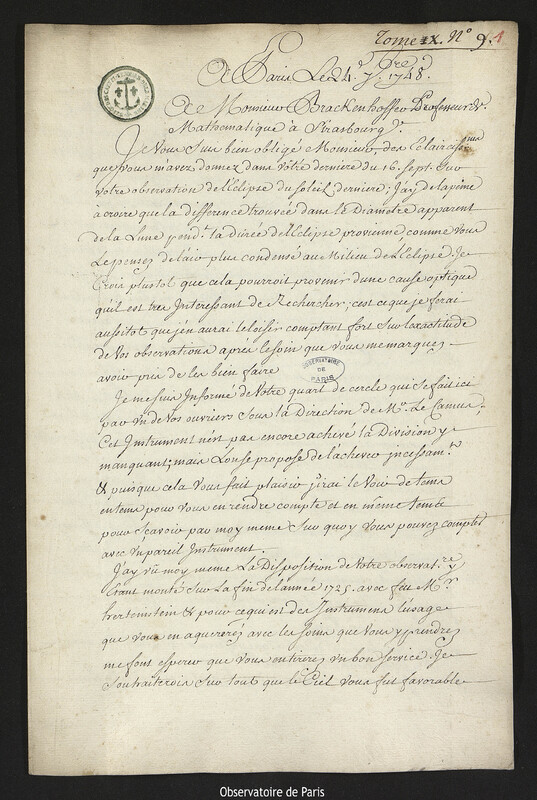 Tome IX. N° 9. 1
A Paris Le 24. 7bre 1748.
A Monsieur Brackenhoffer Professeur de
Mathematique à Strasbourg
Je vous suis bien obligé Monsieur des Eclaircissmens
que vous m'avez donnez dans vôtre derniere du 16. Sept. sur
votre observation de l'Eclipse du Soleil derniere; J'ay de la peine
à croire que la difference trouvée dans le Diametre apparent
de la Lune pendt. la durée de l'Eclipse provienne comme vous
le pensez de l'air plus condensé au milieu de l'Eclipse. Je
Crois plustot que cela pourroit provenir d'une cause optique
qu'il est tres Interessant de Rechercher; c'est ce que je ferai
aussitot que j'en aurai le loisir comptant fort sur l'exactitude
de vos observations après le soin que vous me marquez
avoir pris de les bien faire
OBSERVATOIRE
DE
PARIS
Je me suis Informé de Votre quart de cercle qui se fait ici
par un de vos ouvriers sous la Direction de Mr. Le Camus.
Cet Instrument n'est pas encore achevé la Division y
manquant; mais l'on se propose de l'achever incessamt.
& puisque cela vous fait plaisir j'irai le voir de tems
en tems pour vous en rendre compte et en même tems
pour sçavoir par moy meme sur quoy vous pouvez compter
avec un pareil Instrument.
J'ay vû moy meme La Disposition de Votre observatre. y
étant monté sur la fin de l'année 1725. avec feu Mr.
hertenstein & pour ce qui est des Instrumens l'usage
que vous en aquererés avec les soins que vous y prendrez
me font esperer que vous en tirerez un bon service. Je
souhaiterois sur tout que le Ciel vous fut favorable
Observatoire de Paris